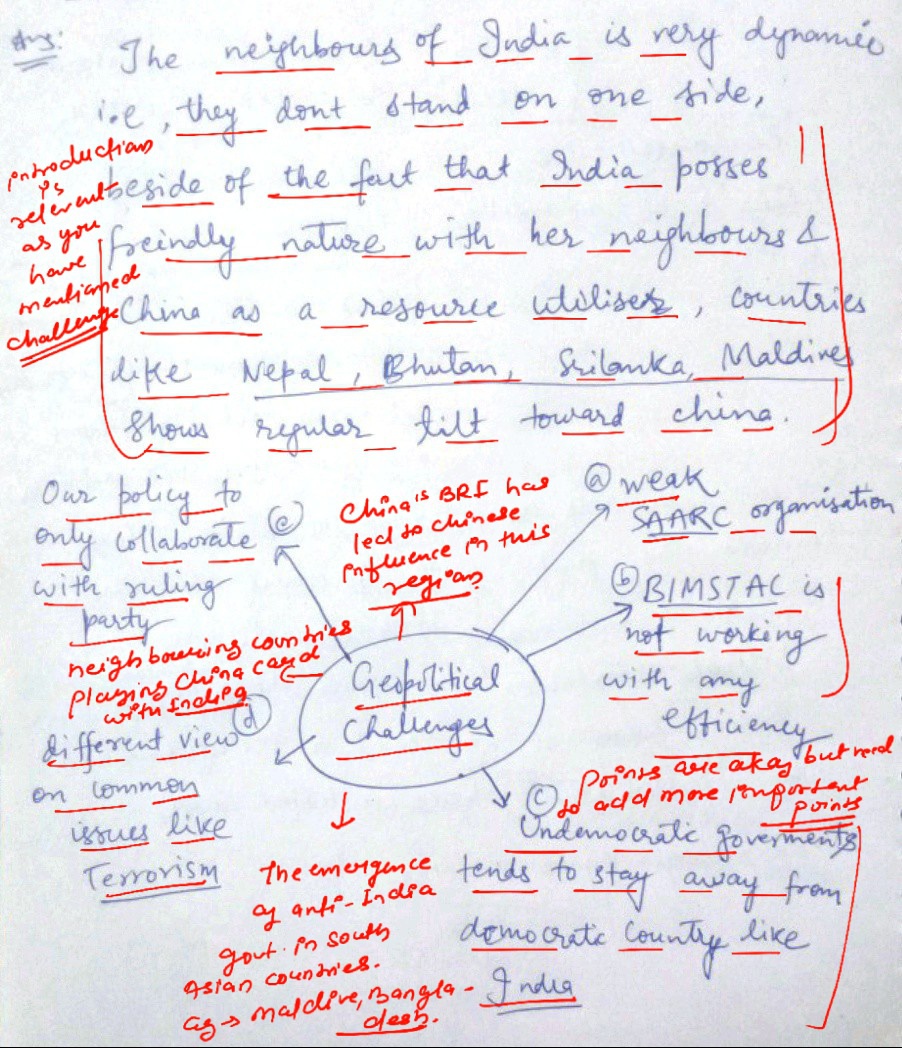 Ans:
The neighbours of India is very dynamic
i.e, they dont stand on one side,
beside of the fact that India posses
freindly nature with her neighbours &
China as a resource utiliser, countries
like Nepal, Bhutan, Srilanka, Maldives
shows regular tilt toward china.
introduction
is
relevent
as you
have
mentioned
challenge
Our policy to
only collaborate
with ruling
party
(e)
China's BRI has
led to chinese
influence in this
region.
(a) weak
SAARC organisation
(b) BIMSTAC is
not working
with any
efficiency
neighbouring countries
playing China card
with India
Geopolitical
Challenges
(d)
different view
on common
issues like
Terrorism
Points are okay but need
to add more important
points
(c)
Undemocratic goverments
tends to stay away from
democratic country like
India
The emergence
of anti-India
govt. in south
Asian countries.
eg → Maldive, Bangla-
desh.